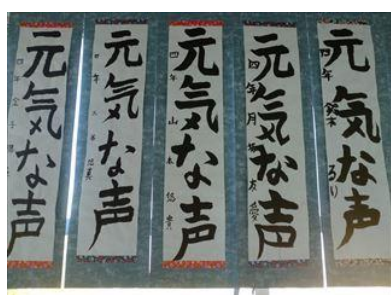 元気な声
四年
元気な声
四年
元気な声
四年 山本
元気な声
四年
元気な声
四年 鈴木